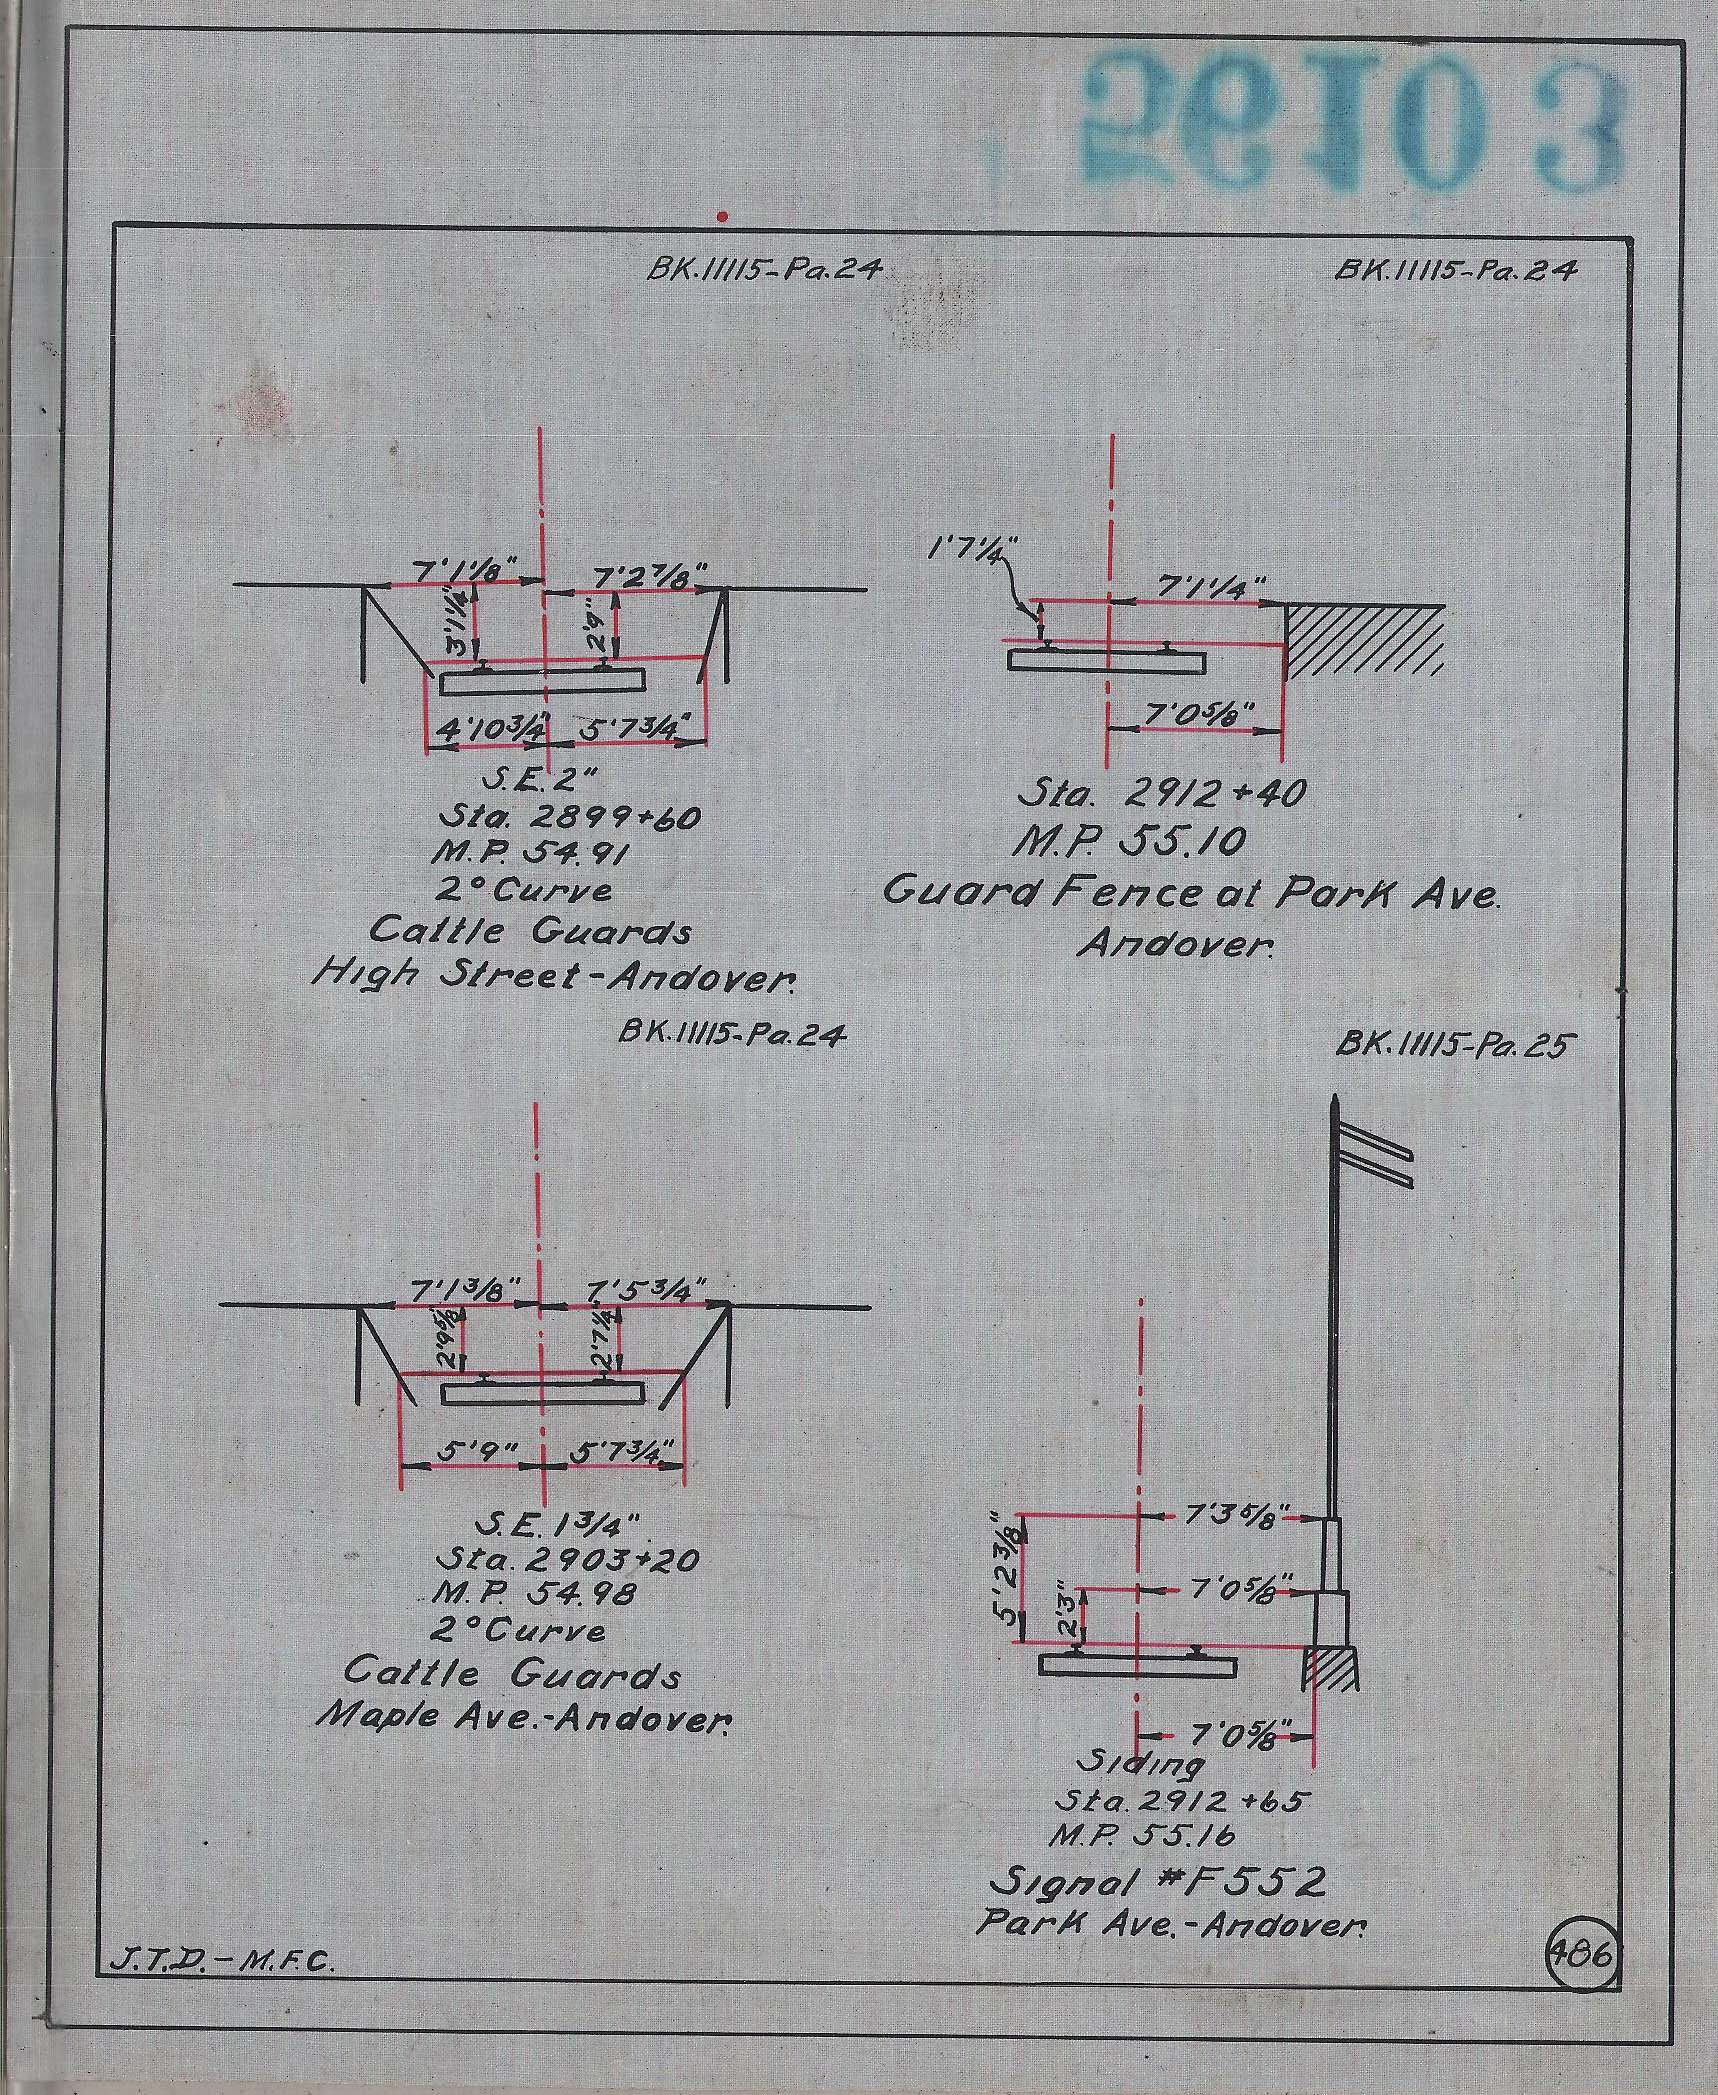 56103
BK.11115-Pa.24
7'1 1/8"
7'2 7/8"
3'1 1/4"
2'9"
4'10 3/4"
5'7 3/4"
S.E. 2"
Sta. 2899+60
M.P. 54.91
2° Curve
Cattle Guards
High Street-Andover.
BK.11115-Pa.24
1'7 1/4"
7'1 1/4"
7'0 5/8"
Sta. 2912+40
M.P. 55.10
Guard Fence at Park Ave.
Andover.
BK.11115-Pa.24
7'1 3/8"
7'5 3/4"
2'9 5/8"
2'7 1/4"
5'9"
5'7 3/4"
S.E. 1 3/4"
Sta. 2903+20
M.P. 54.98
2° Curve
Cattle Guards
Maple Ave.-Andover.
BK.11115-Pa.25
7'3 5/8"
5'2 3/8"
7'0 5/8"
2'3"
7'0 5/8"
Siding
Sta. 2912+65
M.P. 55.16
Signal #F552
Park Ave.-Andover.
J.T.D.-M.F.C.
486